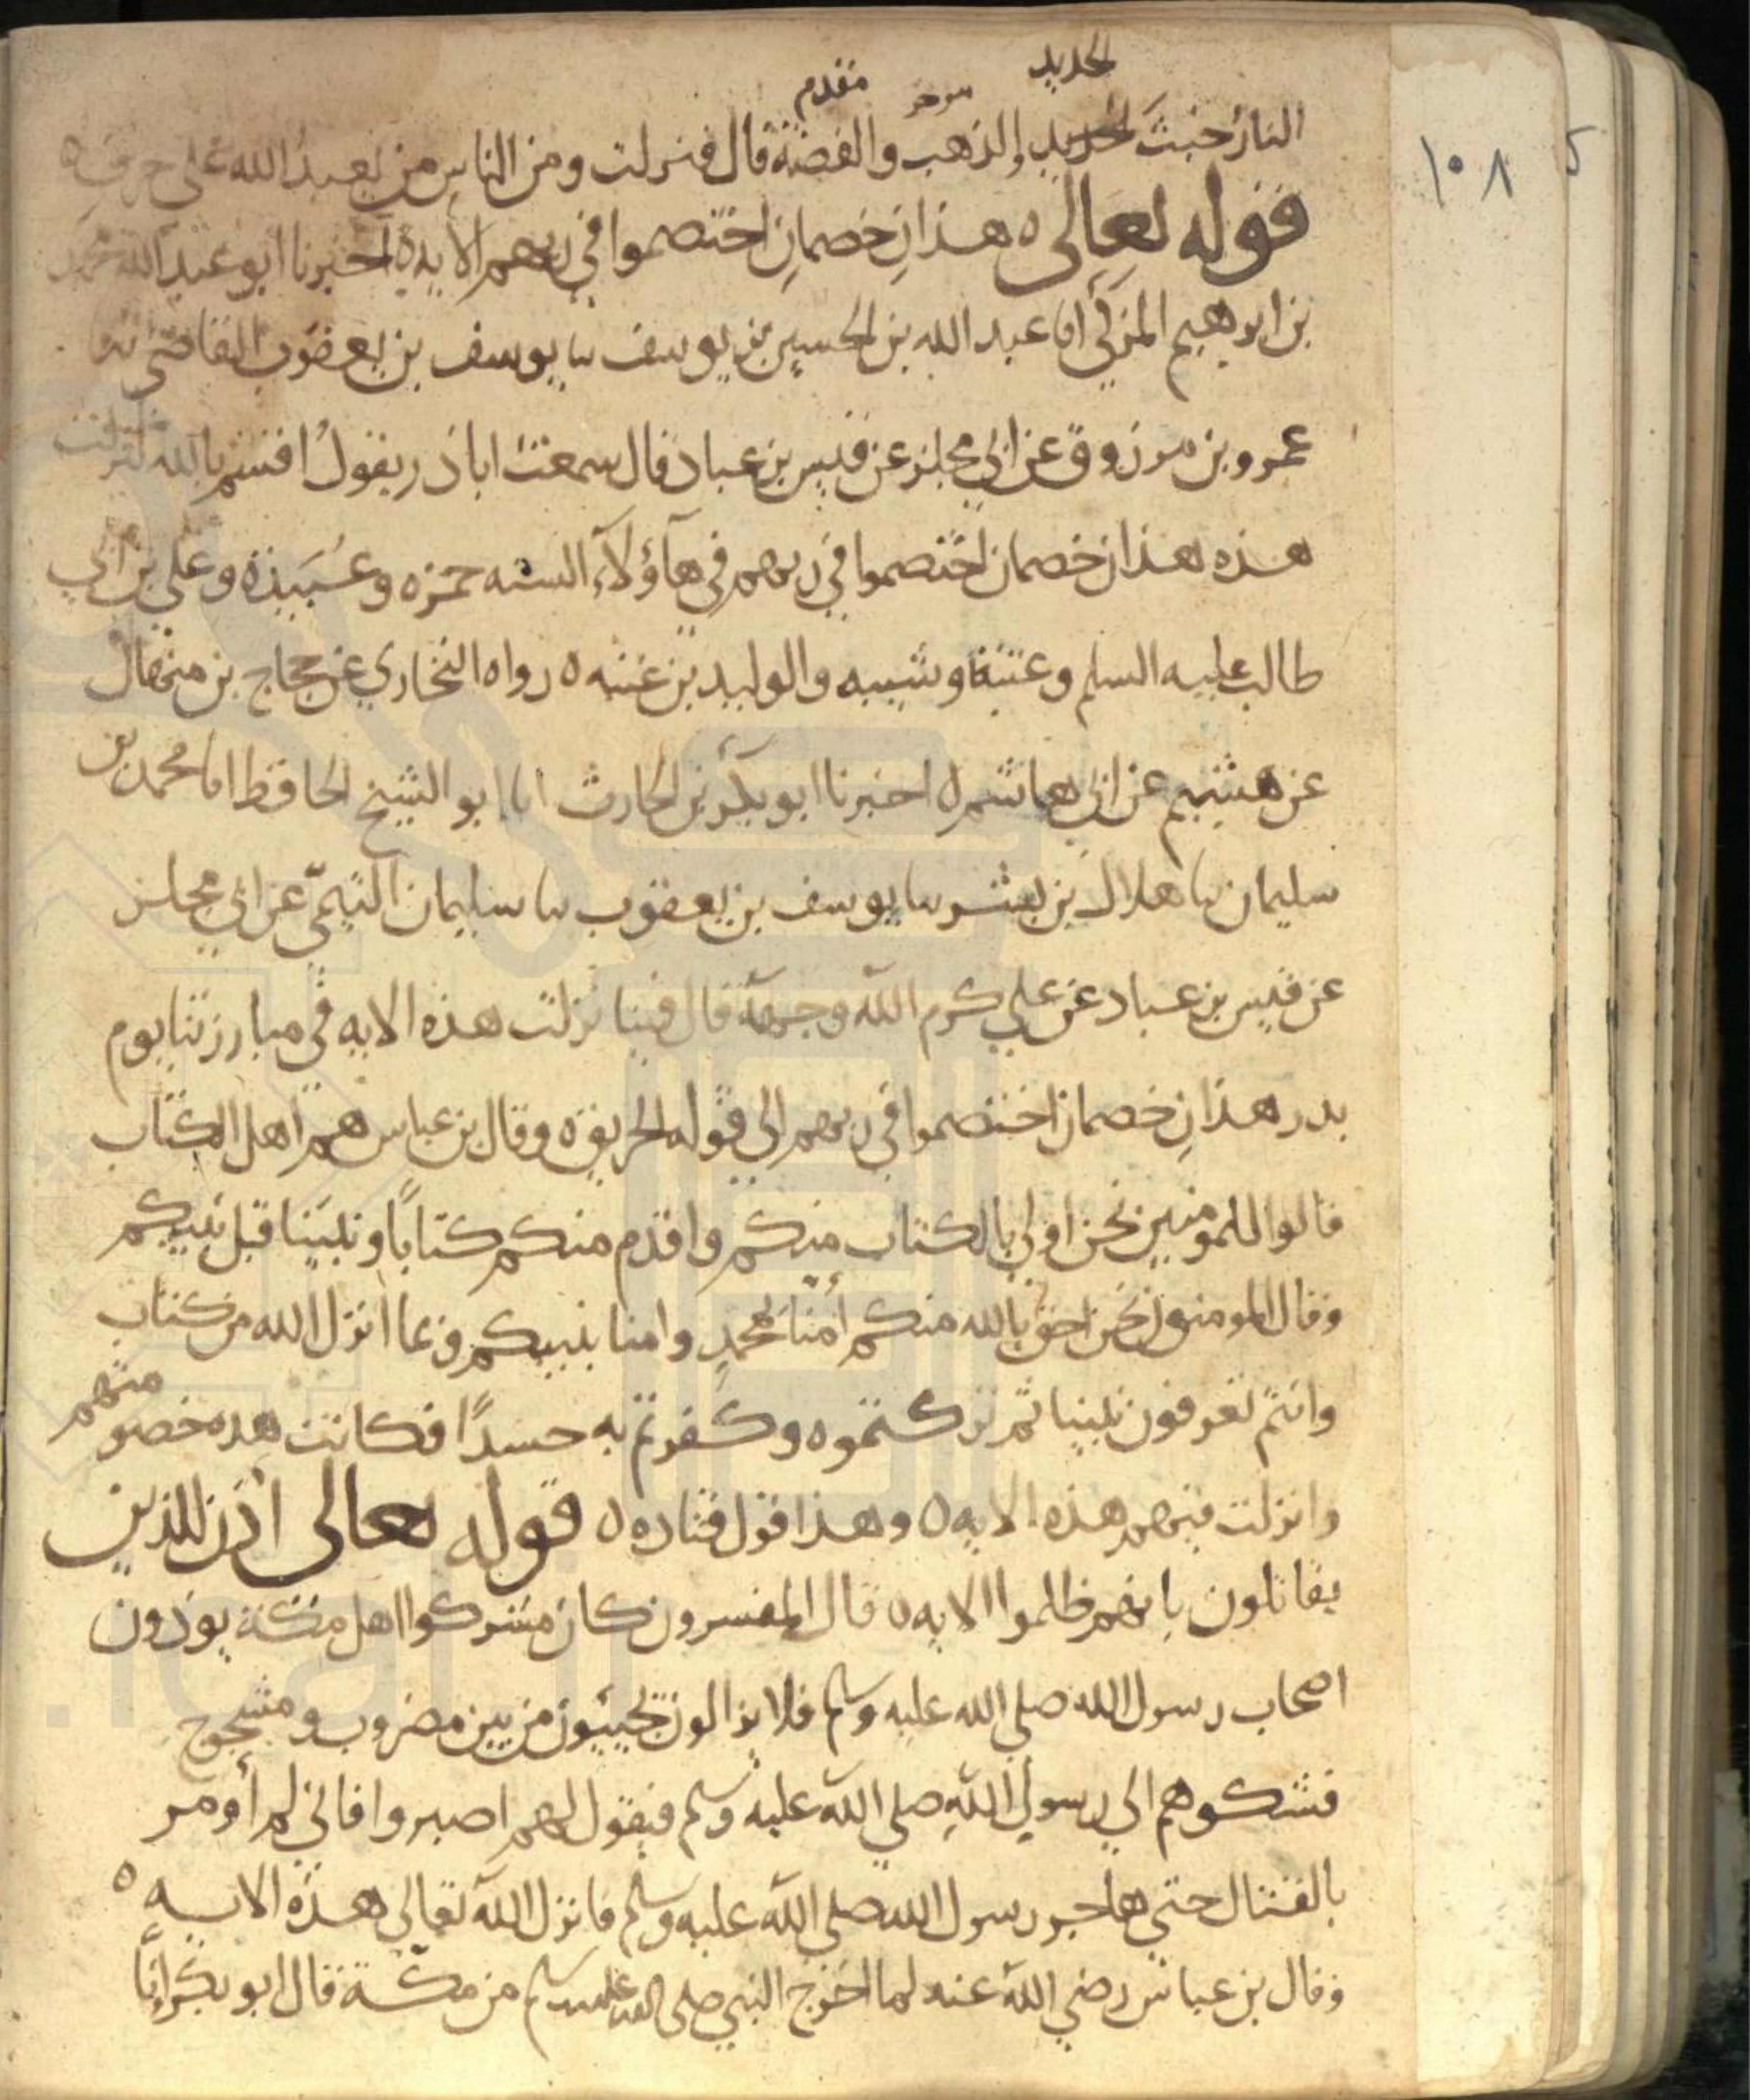 الحديد
موخر
مقدم
النار خبث الحديد والذهب والفضة قال فنزلت ومن الناس من يعبد الله على حرف ه
١٠٨
قوله تعالى ه هذان خصمان اختصموا في ربهم الايه ه اخبرنا ابو عبد الله محمد
بن ابرهيم المزكي انا عبد الله بن الحسين بن يوسف نا يوسف بن يعقوب القاضي نا
عمرو بن مرزوق عن ابي مجلز عن قيس بن عباد قال سمعت ابا ذر يقول اقسم بالله لنزلت
هذه هذان خصمان اختصموا في ربهم في هاؤلاء السته حمزه وعبيدة وعلي بن ابي
طالب عليه السلم وعتبة وشيبه والوليد بن عتبه ه رواه البخاري عن حجاج بن منهال
عن هشيم عن ابي هاشم ه اخبرنا ابو بكر بن الحارث انا ابو الشيخ الحافظ انا محمد بن
سليمان نا هلال بن بشر نا يوسف بن يعقوب نا سليمان التيمي عن ابي مجلز
عن قيس بن عباد عن علي كرم الله وجهه قال فينا نزلت هذه الايه في مبارزتنا يوم
بدر هذان خصمان اختصموا في ربهم الى قوله الحريق ه وقال بن عباس هم اهل الكتاب
قالوا للمومنين نحن اولى بالكتاب منكم واقدم منكم كتابا ونبينا قبل نبيكم
وقال المومنون نحن احق بالله منكم امنا بمحمد وامنا بنبيكم وبما انزل الله من كتاب
وانتم تعرفون نبينا ثم تركتموه وكفرتم به حسدا فكانت هذه خصومتهم
وانزلت فيهم هذه الايه ه وهذا قول قتاده ه قوله تعالى اذن للذين
يقاتلون بانهم ظلموا الايه ه قال المفسرون كان مشركوا اهل مكة يوذون
اصحاب رسول الله صلى الله عليه وسلم فلا يزالون يجيئون من بين مضروب ومشجوج
فشكوهم الى رسول الله صلى الله عليه وسلم فيقول لهم اصبروا فاني لم أومر
بالقتال حتى هاجر رسول الله صلى الله عليه وسلم فانزل الله تعالى هذه الايه ه
وقال بن عباس رضي الله عنه لما اخرج النبي صلى الله عليه وسلم من مكة قال ابو بكر إنا